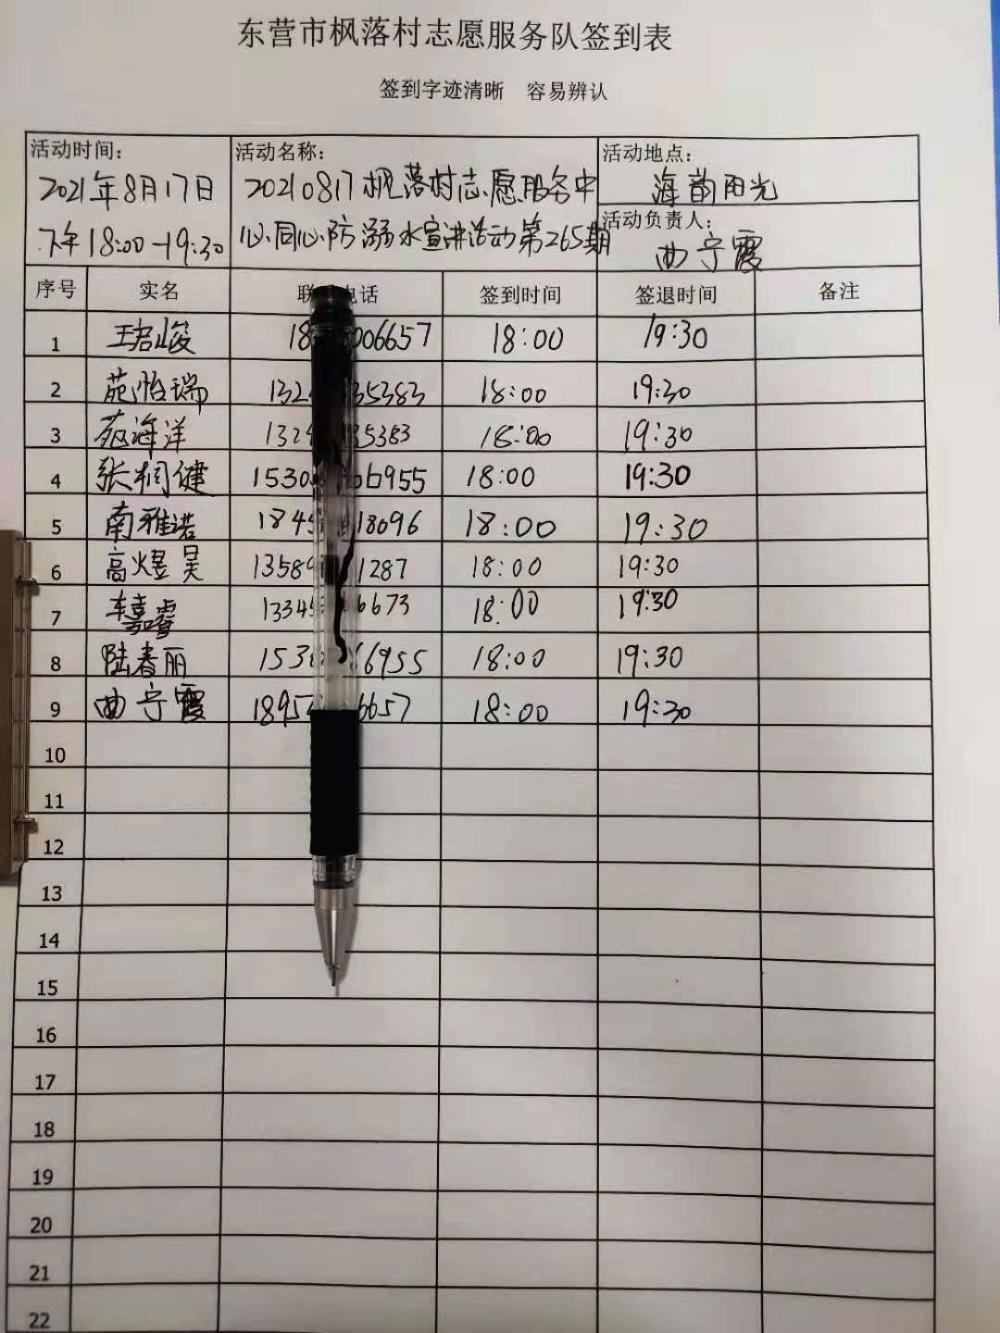 东营市枫落村志愿服务队签到表
签到字迹清晰 容易辨认
活动时间：
2021年8月17日
下午18:00-19:30
活动名称：
20210817枫落村志愿服务中
心同心防溺水宣讲活动第265期
活动地点：
海韵阳光
活动负责人：
曲宁霞
序号 实名 电话 签到时间 签退时间 备注
1 王君峻 18 006657 18:00 19:30
2 苑怡瑞 132 35383 18:00 19:30
3 苑海洋 132 35383 18:00 19:30
4 张桐健 1530 06955 18:00 19:30
5 南雅诺 184 18096 18:00 19:30
6 高煜昊 1358 1287 18:00 19:30
7 车嘉睿 1334 6673 18:00 19:30
8 陆春丽 153 6955 18:00 19:30
9 曲宁霞 1895 6657 18:00 19:30
10
11
12
13
14
15
16
17
18
19
20
21
22